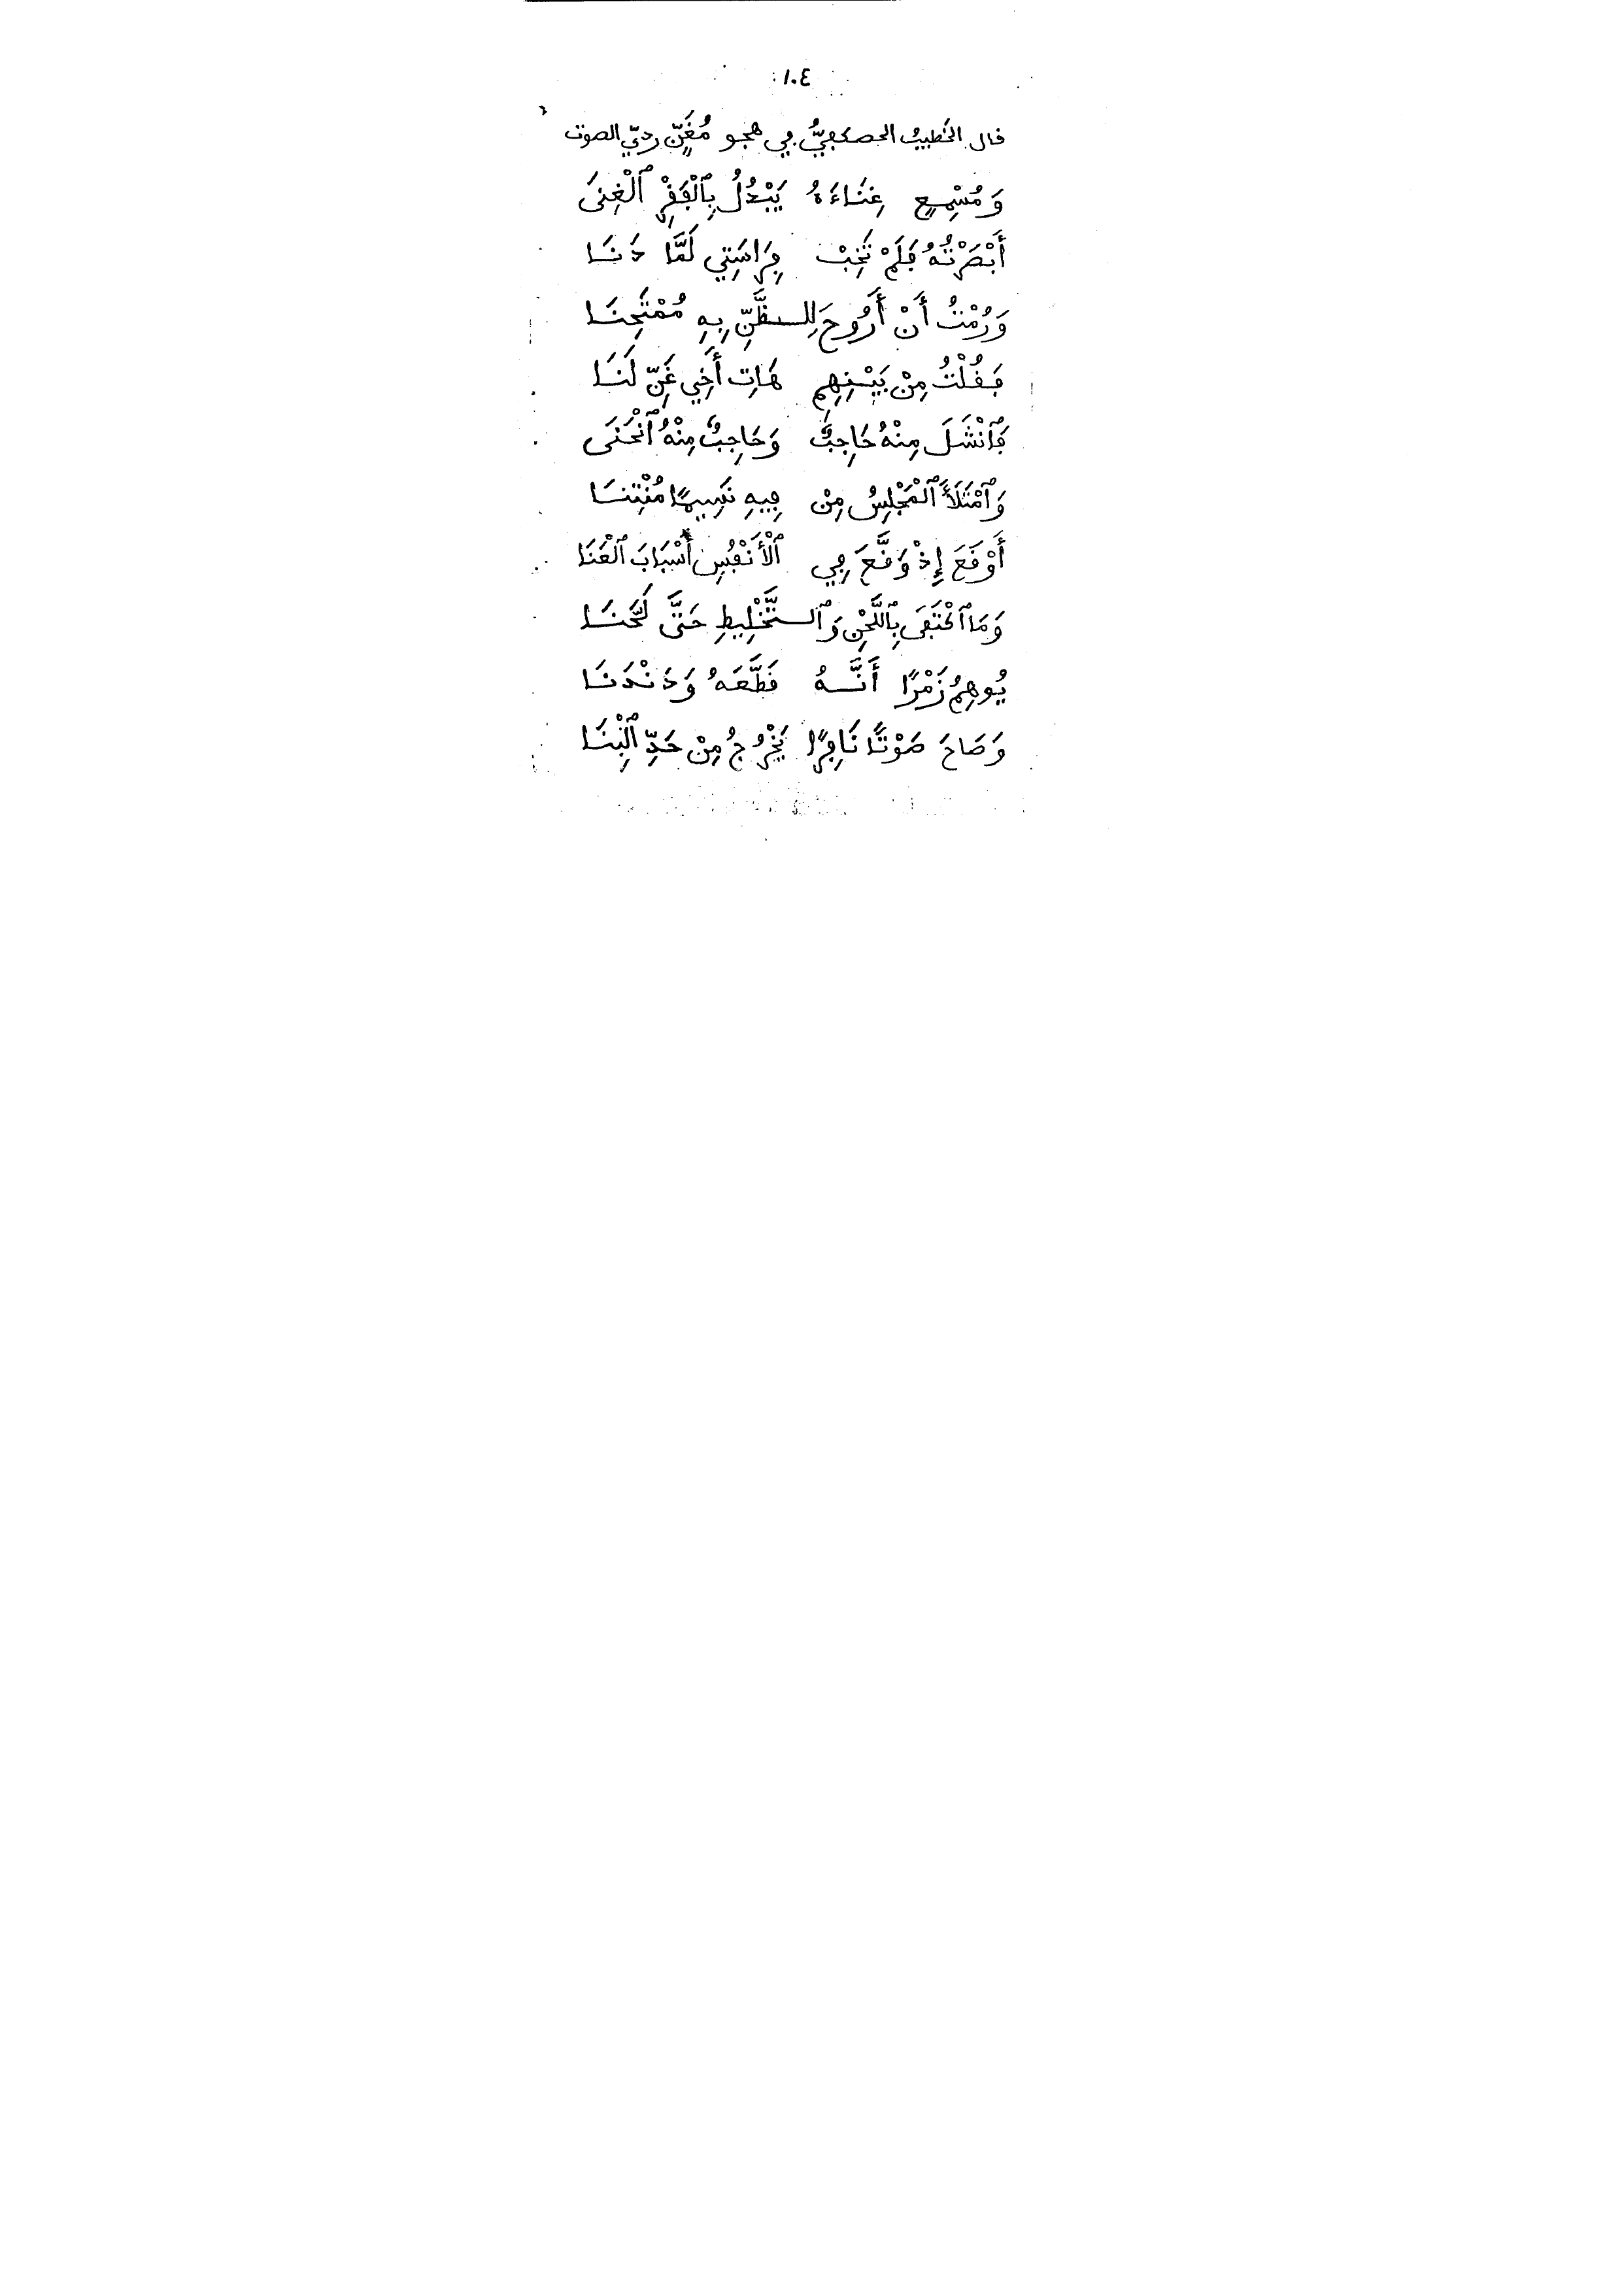 ١٠٤
قال الخطيبُ الحصكفيُّ في هجو مُغَنٍّ رديّ الصوت
وَمُسْمِعٍ غِنَاءَهُ يُبْدِلُ بِٱلْفَقْرِ ٱلْغِنَى
أَبْصَرْتُهُ فَلَمْ تَخِبْ فِرَاسَتِي لَمَّا دَنَا
وَرُمْتُ أَنْ أَرُوحَ لِلظَّنِّ بِهِ مُمْتَحِنَا
فَقُلْتُ مِنْ بَيْنِهِم هَاتِ أَخِي غَنِّ لَنَا
فَٱنْشَلَ مِنْهُ حَاجِبٌ وَحَاجِبٌ مِنْهُ ٱنْحَنَى
وَٱمْتَلَأَ ٱلْمَجْلِسُ مِنْ فِيهِ نَسِيمًا مُنْتِنَا
أَوْقَعَ إِذْ وَقَّعَ فِي ٱلْأَنْفُسِ أَسْبَابَ ٱلْعَنَا
وَمَا ٱكْتَفَى بِٱللَّحْنِ وَٱلتَّخْلِيطِ حَتَّى لَحَّنَا
يُوهِمُ زَمْرًا أَنَّهُ قَطَّعَهُ وَدَنْدَنَا
وَصَاحَ صَوْتًا نَافِرًا يَخْرُجُ مِنْ حَدِّ ٱلْبِنَا